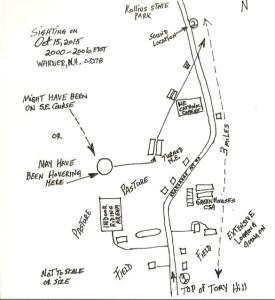 SIGHTING ON
OCT 15, 2015
2000-2006 EDT
WARNER, N.H. 03278
ROLLINS STATE
PARK
SOUND
LOCATION
N
3 MILES
MIGHT HAVE BEEN
ON S.E. COURSE
OR
MAY HAVE
BEEN HOVERING
HERE
TURNED
N.E.
PASTURE
INDOOR
RIDING
ARENA
PASTURE
GREENHOUSES
CSA
EXTENSIVE
LOGGING
FIELD
FIELD
NOT TO SCALE
OR SIZE
TOP OF TORY HILL